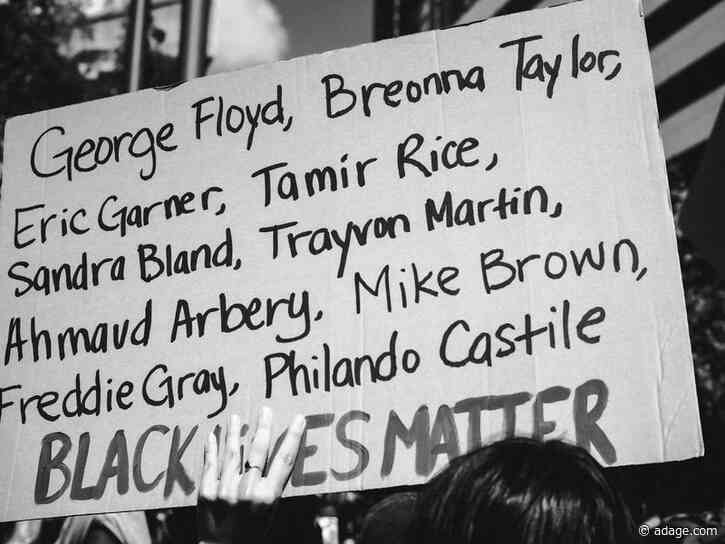 George Floyd, Breonna Taylor,
Eric Garner, Tamir Rice,
Sandra Bland, Trayvon Martin,
Ahmaud Arbery, Mike Brown,
Freddie Gray, Philando Castile
BLACK LIVES MATTER
© adage.com